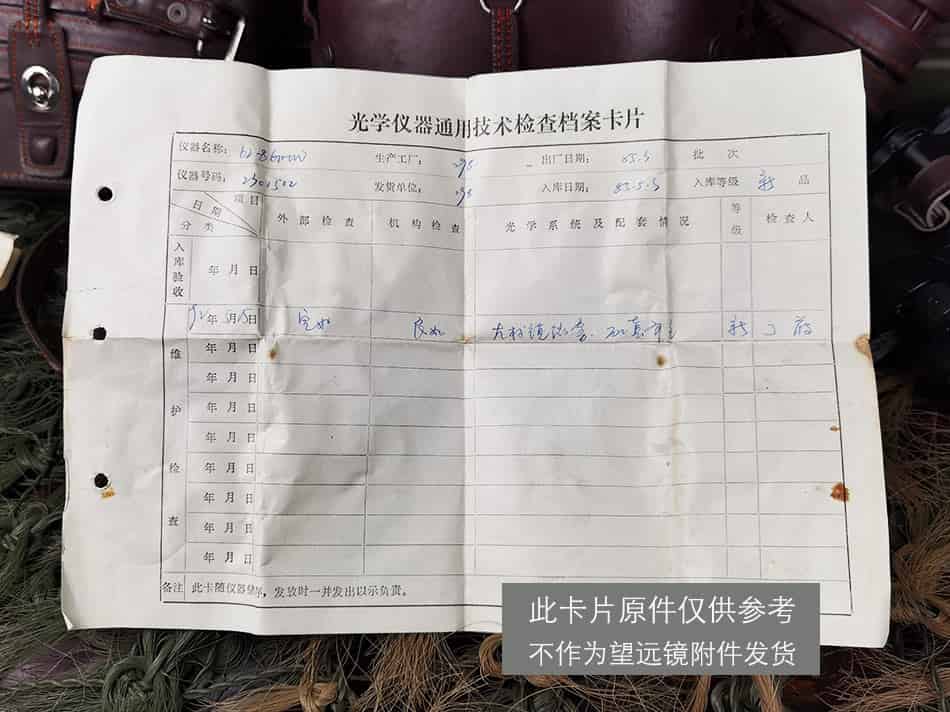 光学仪器通用技术检查档案卡片
仪器名称： 62-8 生产工厂： 298 出厂日期： 85.3 批次
仪器号码： 2301502 发货单位： 298 入库日期： 85.5.3 入库等级 新 品
项目 日期 分类 外部检查 机构检查 光学系统及配套情况 等级 检查人
入库验收 年月日
年月日 完好 良好 新
维护检查
年月日
年月日
年月日
年月日
年月日
年月日
年月日
年月日
备注 此卡随仪器 发放时一并发出以示负责。
此卡片原件仅供参考
不作为望远镜附件发货